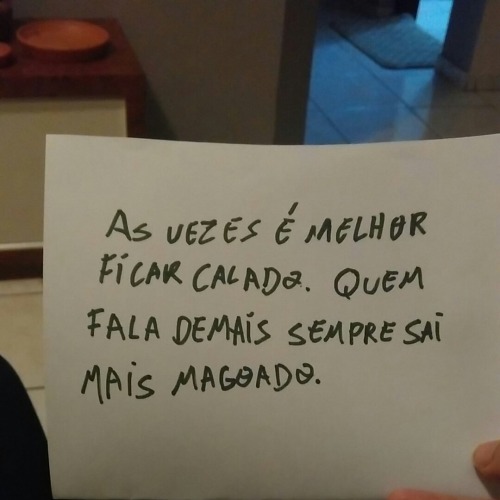 AS VEZES É MELHOR
FICAR CALADO. QUEM
FALA DEMAIS SEMPRE SAI
MAIS MAGOADO.